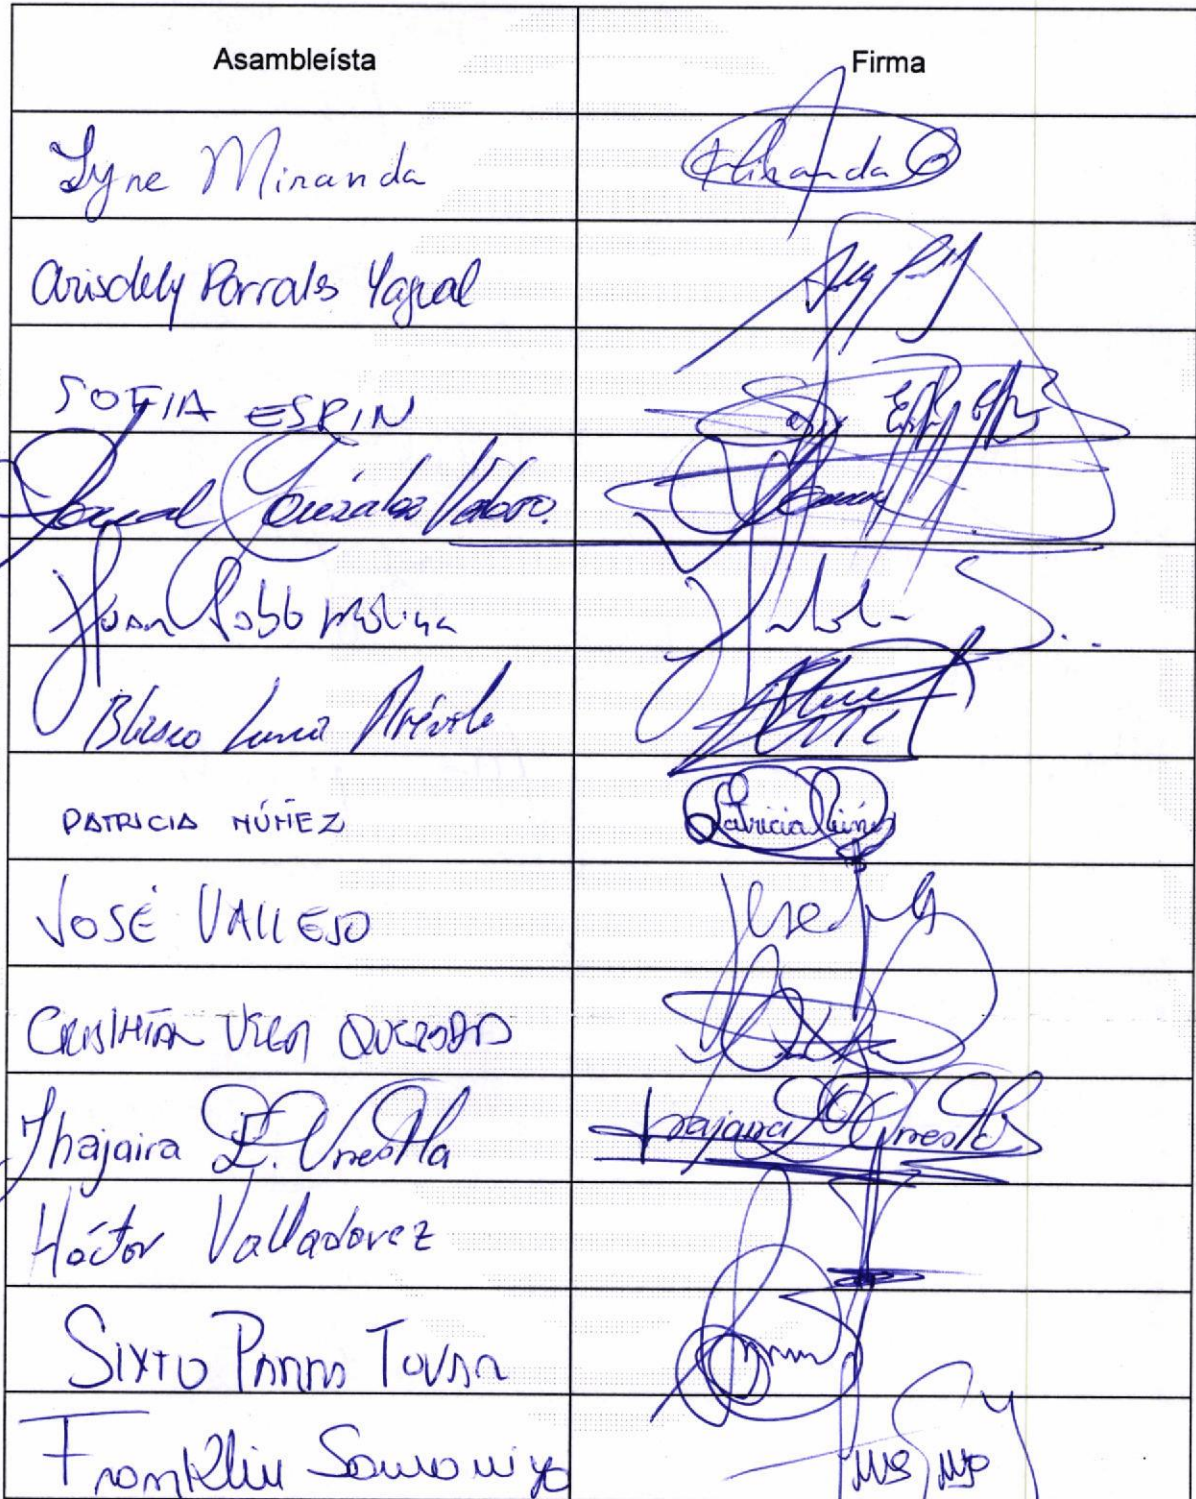 Asambleísta Firma
Lyne Miranda Miranda
Arisdely Parrales Yagual
SOFIA ESPIN
González Valero.
Juan Pablo Molina
Blasco Luna Arévalo
PATRICIA NÚÑEZ Patricia Núñez
JOSÉ VALLEJO Jose
CRISTHIAN VEGA QUEZADA
Jhajaira E. Urresta Jhajaira Urresta
Héctor Valladarez
SIXTO PARRA TOVAR
Franklin Samaniego